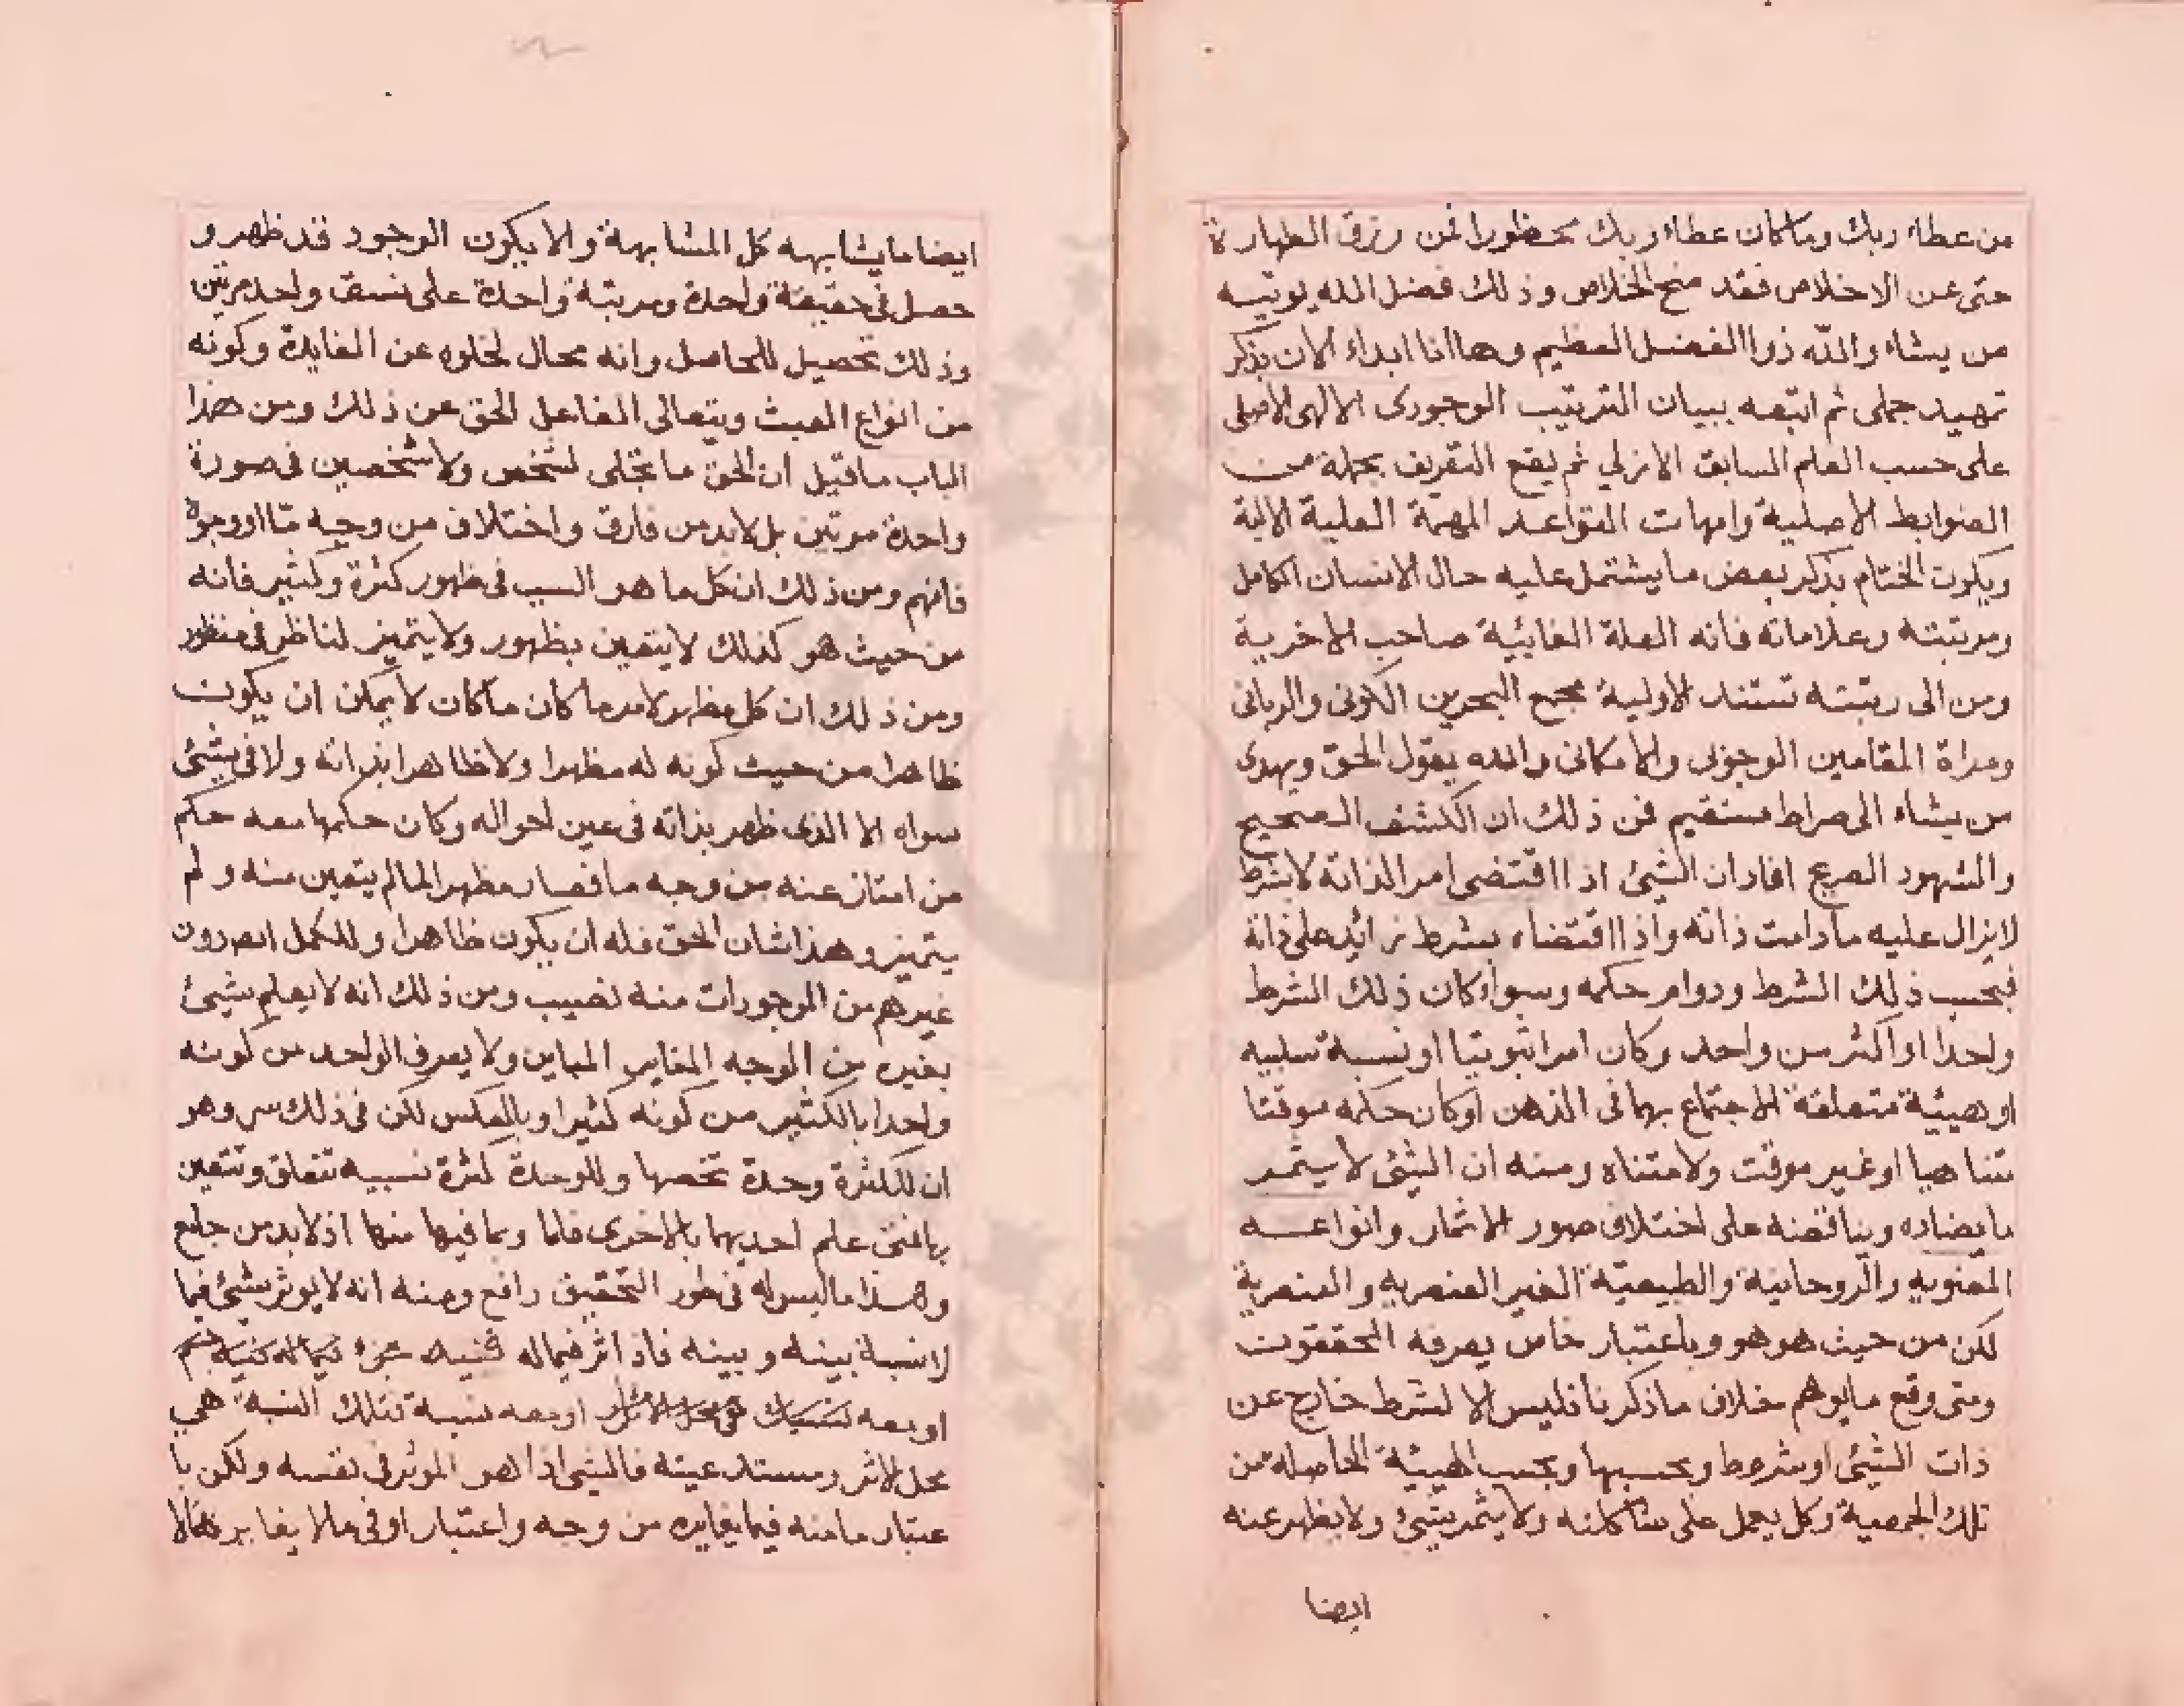 من عطاء ربك وما كان عطاء ربك محظورا فمن رزق الطهارة
حتى عن الاخلاص فقد منح الخلاص وذلك فضل الله يوتيه
من يشاء والله ذوا الفضل العظيم وها انا ابداء الان بذكر
تمهيد جملى ثم اتبعه ببيان الترتيب الوجودى الالهى الاصلى
على حسب العلم السابق الازلي ثم يقع التعريف بجملة من
الضوابط الاصلية وامهات القواعد المهمة العلية الالية
ويكون الختام بذكر بعض ما يشتمل عليه حال الانسان الكامل
ومرتبته وعلاماته فانه العلة الغائية صاحب الاخرية
ومن الى رتبته تستند الاولية مجمع البحرين الكونى والربانى
ومراة المقامين الوجوبى والامكانى والله يقول الحق ويهدى
من يشاء الى صراط مستقيم فمن ذلك ان الكشف الصحيح
والشهود الصريح افاد ان الشيئ اذا اقتضى امر الذاته لا بشرط
لا يزال عليه ما دامت ذاته واذا اقتضاه بشرط زائد على ذاته
فبحسب ذلك الشرط ودوام حكمه وسواء كان ذلك الشرط
واحدا او اكثر من واحد وكان امرا ثبوتيا او نسبة سلبيه
او هيئية متعلقة الاجتماع بها فى الذهن او كان حكمه موقتا
متناهيا او غير موقت ولا متناه ومنه ان الشئ لا يثمر
ما يضاده ويناقضه على اختلاف صور الاثمار وانواعه
المعنويه والروحانية والطبيعية الغير العنصريه والعنصرية
لكن من حيث هو هو وباعتبار خاص يعرفه المحققون
ومتى وقع ما يوهم خلاف ما ذكرنا فليس الا لشرط خارج عن
ذات الشيئ او شروط وبحسبها وبحسب الهيئة الحاصلة من
تلك الجمعية وكل يعمل على شاكلته ولا يثمر شيئ ولا يظهر عنه
ايضا
ايضا ما يشابهه كل المشابهة والا يكون الوجود قد ظهر و
حصل فى حقيقة واحدة ومرتبة واحدة على نسق واحد مرتين
وذلك تحصيل للحاصل وانه محال لخلوه عن الفايدة وكونه
من انواع العبث ويتعالى الفاعل الحق عن ذلك ومن هذا
الباب ما قيل ان الحق ما تجلى لشخص ولا شخصين فى صورة
واحدة مرتين بل لابد من فارق واختلاف من وجه ما او وجوه
فافهم ومن ذلك ان كل ما هو السبب فى ظهور كثرة وكثير فانه
من حيث هو كذلك لا يتعين بظهور ولا يتميز لناظر فى منظور
ومن ذلك ان كل مظهر لامر ما كان ما كان لا يمكن ان يكون
ظاهرا من حيث كونه له مظهرا ولا ظاهرا بذاته ولا فى شئ
سواه الا الذى ظهر بذاته فى عين احواله وكان حكمها معه حكم
من امتاز عنه من وجه ما فصار مظهرا لما لم يتعين منه ولم
يتميز وهذا شان الحق فله ان يكون ظاهرا وللكمل
غيرهم من الموجودات منه نصيب ومن ذلك انه لا يعلم شيئ
بغيره من الوجه المغاير المباين ولا يعرف الواحد من كونه
واحدا بالكثير من كونه كثيرا وبالعكس لكن فى ذلك سر وهو
ان للكثرة وحدة تخصها وللوحدة كثرة نسبيه تتعلق وتتعين
بها فمتى علم احديهما بالاخرى فلما وبما فيها منها اذ لا بد من جامع
وهذا ما ليس له فى طور التحقيق رافع ومنه انه لا يوثر شيئ فيما
لا نسبة بينه وبينه فاذا اثر فيما له
او معه او معه نسبة فتلك النسبة هى
محل الاثر ومستدعيته فالشئ اذا هو الموثر فى نفسه ولكن با
عتبار ما منه فيما يغايره من وجه واعتبار او فى ما لا يغايره